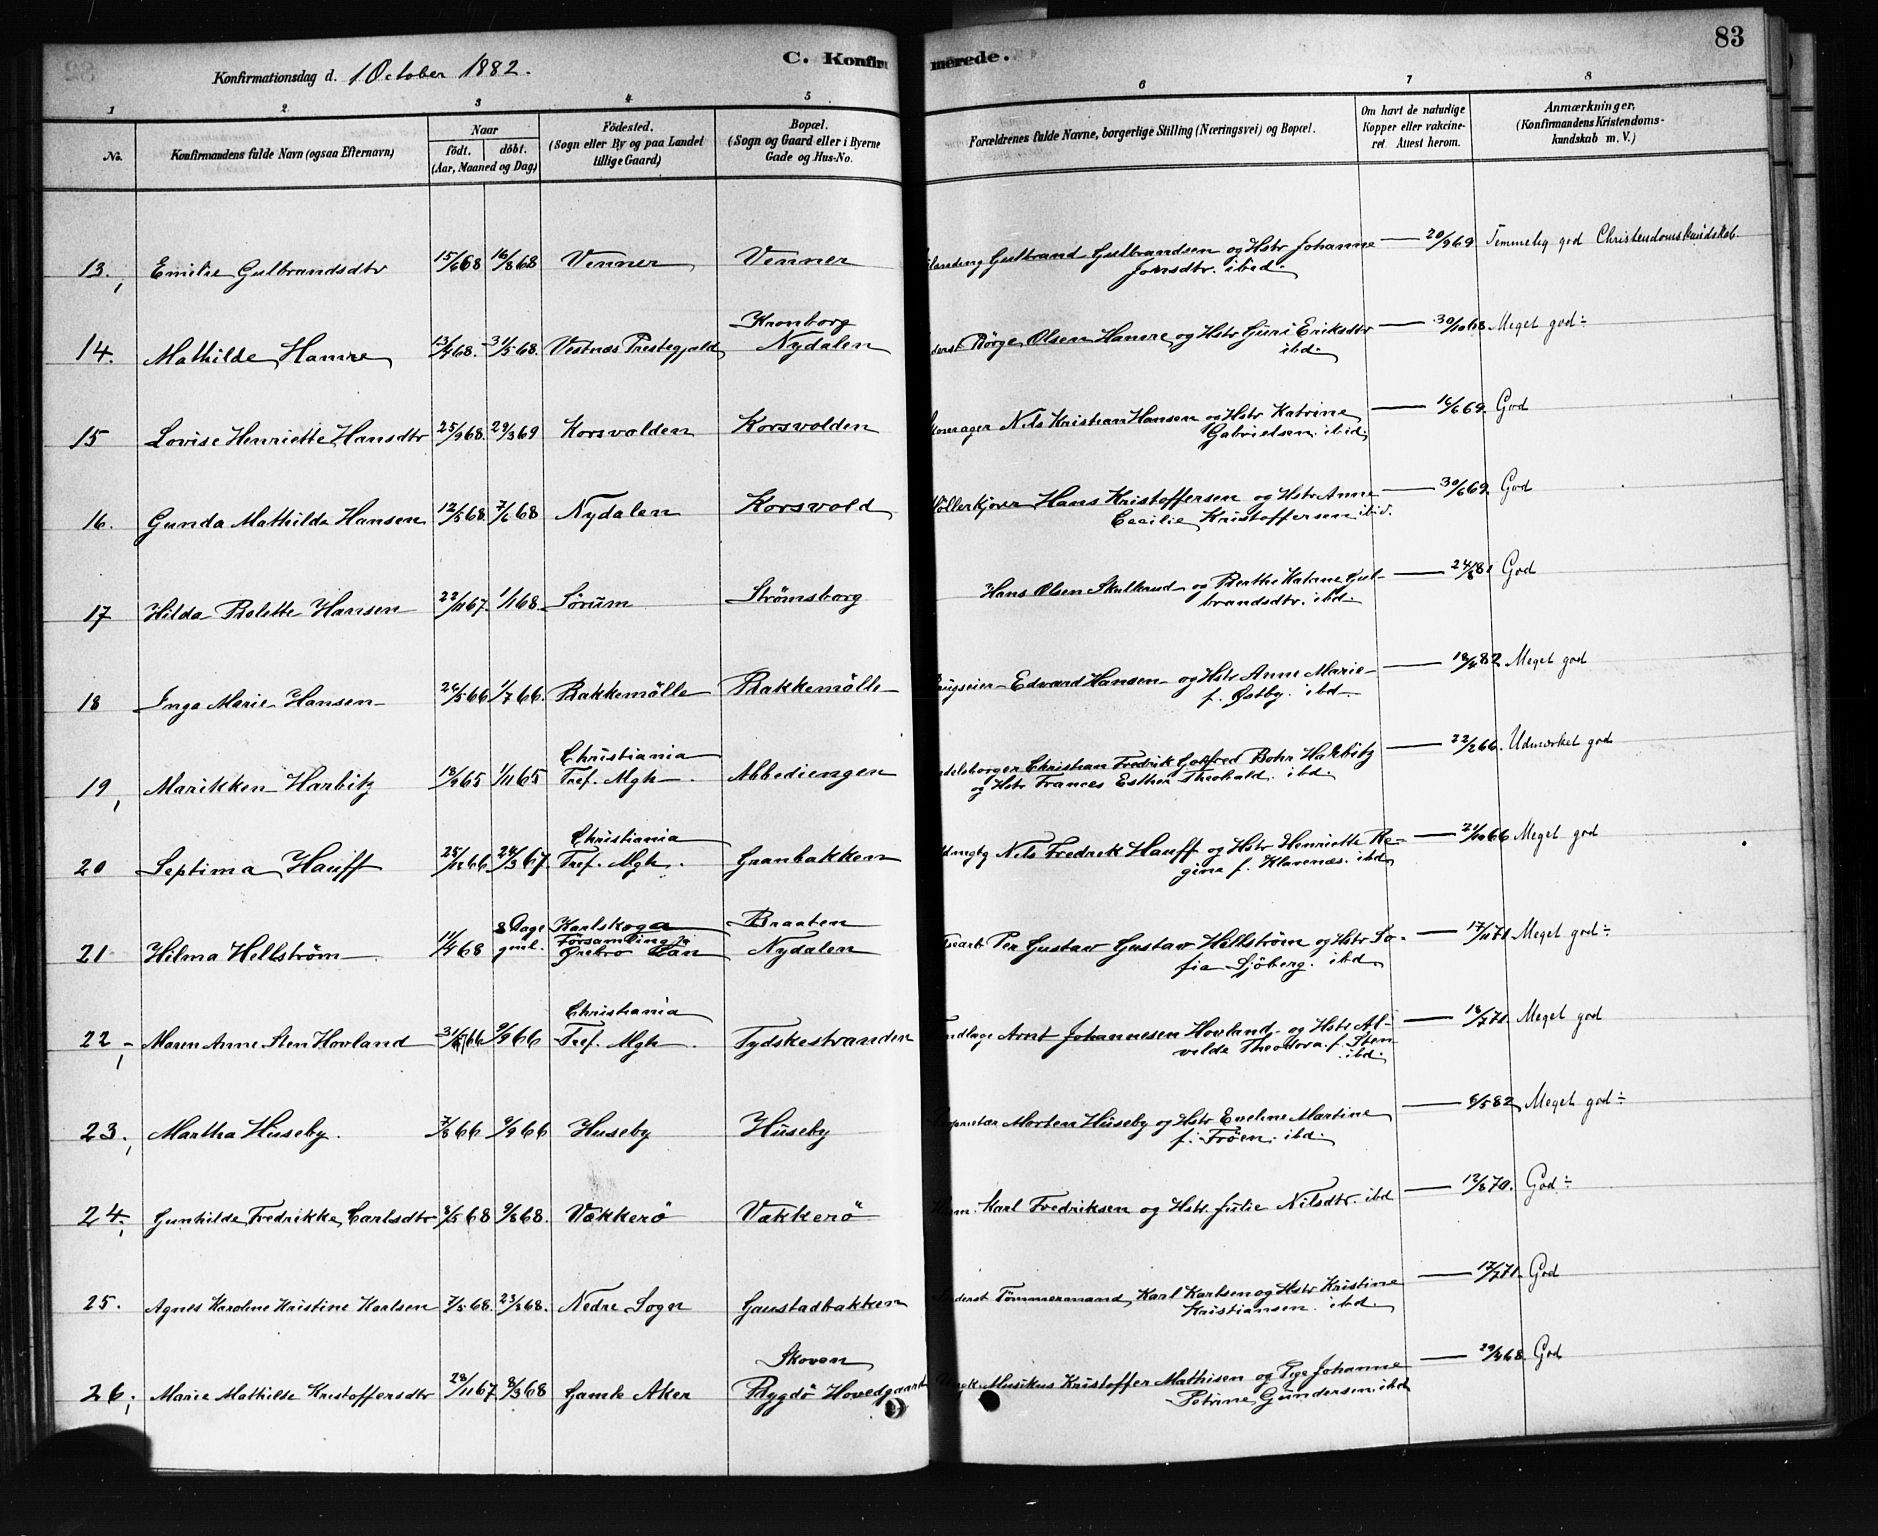 83
C. Konfirmerede.
Konfirmationsdag d. 1 October 1882.
1 2 3 4 5 6 7 8
No. Konfirmandens fulde Navn (ogsaa Efternavn) Naar födt. döbt. (Aar, Maaned og Dag) Födested. (Sogn eller By og paa Landet tillige Gaard) Bopæl. (Sogn og Gaard eller i Byerne Gade og Hus-No. Forældrenes fulde Navne, borgerlige Stilling (Næringsvei) og Bopæl. Om havt de naturlige Kopper eller vakcineret. Attest herom. Anmærkninger. (Konfirmandens Kristendomskundskab m. V.)
13. Emilie Gulbrandsdtr 15/6 68 16/8 68 Venner Venner Gulbrand Gulbrandsen og Hstr Johanne — 20/9 69 Temmelig god Christendomskundskab
Jonsdtr. ibid.
Kronborg
14. Mathilde Hamre 13/4 68. 31/5 68. Vestnæs Prestegjæld Nydalen Børge Olsen Hamre og Hstr Guri Eriksdtr — 30/10 68 Meget god÷
ibd.
15 Lovise Henriette Hansdtr 25/9 68. 29/3 69 Korsvolden Korsvolden Nils Kristian Hansen og Hstr Katrine — 16/6 69. God
Gabrielsen. ibid.
16. Gunda Mathilde Hansen 12/5 68. 7/6 68 Nydalen Korsvold Møllerkjører Hans Kristoffersen og Hstr Anne — 30/6 69. God
Cecilie Kristoffersen ibid.
17 Hilda Bolette Hansen 22/11 67 1/1 68. Sörum Strömsborg Hans Olsen Skulkerud og Berthe Katrine Gul- — 24/8 81 God
brandsdtr. ibd.
18 Inga Marie Hansen 26/5 66 1/7 66. Bakkemölle Bakkemölle Edvard Hansen og Hstr Anne Marie — 82 Meget god
f. Østby. ibd.
Christiania
19, Marikken Harbitz 65 1/11 65 Tref. Mgh. Abbediengen Christian Fredrik Gotfred Bohr Harbitz — 22/2 66. Udmærket god
og Hstr Frances Esther Theobald. ibd.
Christiania
20 Septima Hauff 25/12 66 24/3 67. Tref. Mgh. Granbakken Nils Fredrik Hauff og Hstr Henriette Re- — 21/10 66 Meget god
gine f. Klavenæs. ibd
8 Dage Karlskoga Braaten
21 Hilma Hellström 11/4 68 gml. Forsamling Örebro Län Nydalen Per Gustav Gustav Hellström og Hstr So- — 17/11 71 Meget god÷
fia Sjöberg. ibd
Christiania
22, Maren Anne Sten Howland 66 9/9 66 Tref. Mgh. Tydskestranden Arnt Johannesen Howland og Hstr Al- — 18/7 71. Meget god
vilde Theodora. f. Sten
ibd.
23, Martha Huseby. 7/8 66 9/9 66 Huseby Huseby Proprietær Morten Huseby og Hstr Eveline Martine — 6/5 82 Meget god÷
f. Fröen. ibd.
24, Gunhilde Fredrikke Carlsdtr 8/5 68 9/8 68. Vækkerö Vækkerö Karl Fredriksen og Hstr. Julie Nilsdtr. ibd — 12/8 70. God÷
25. Agnes Karoline Kristine Karlsen 7/5 68. 23/8 68. Nedre Sogn Gaustadbakken Tömmermand Karl Karlsen og Hstr Kristine — 71. God
Kristiansen. ibd.
Skoven
26, Marie Mathilde Kristoffersdtr 28/11 67 8/3 68 Gamle Aker Bygdö Hovedgaard Musikus Kristoffer Mathisen og Pige Johanne — 68 God
Petrine Gundersen. ibd